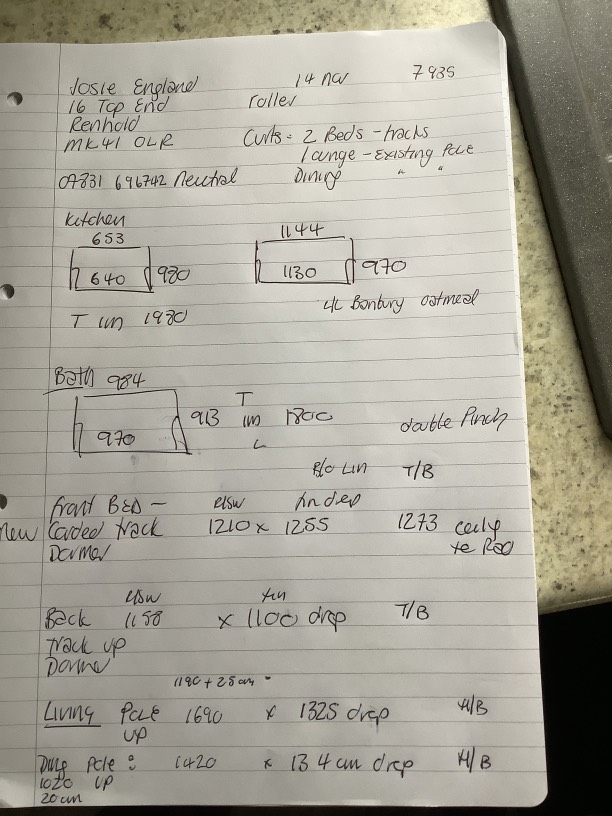 Josie England 14 nov 7935
16 Top End roller
Renhold
MK41 0LR Curts = 2 Beds - tracks
lounge - existing Pole
07831 696742 Neutral Dining " "
Kitchen
653 1144
640 980 1130 970
4L Banbury oatmeal
T un 1980
Bath 984
970 913 T un L 1800
double Pinch
B/o Lin T/B
front BED - elsw fin drop
new Corded track 1210 x 1255 1273
Dormer
elsw fin
Back 1158 x 1100 drop T/B
track up
Dormer
1190 + 25cm =
Living Pole 1690 x 1325 drop H/B
up
Pole : 1420 x 134 cm drop H/B
1020 up
20cm